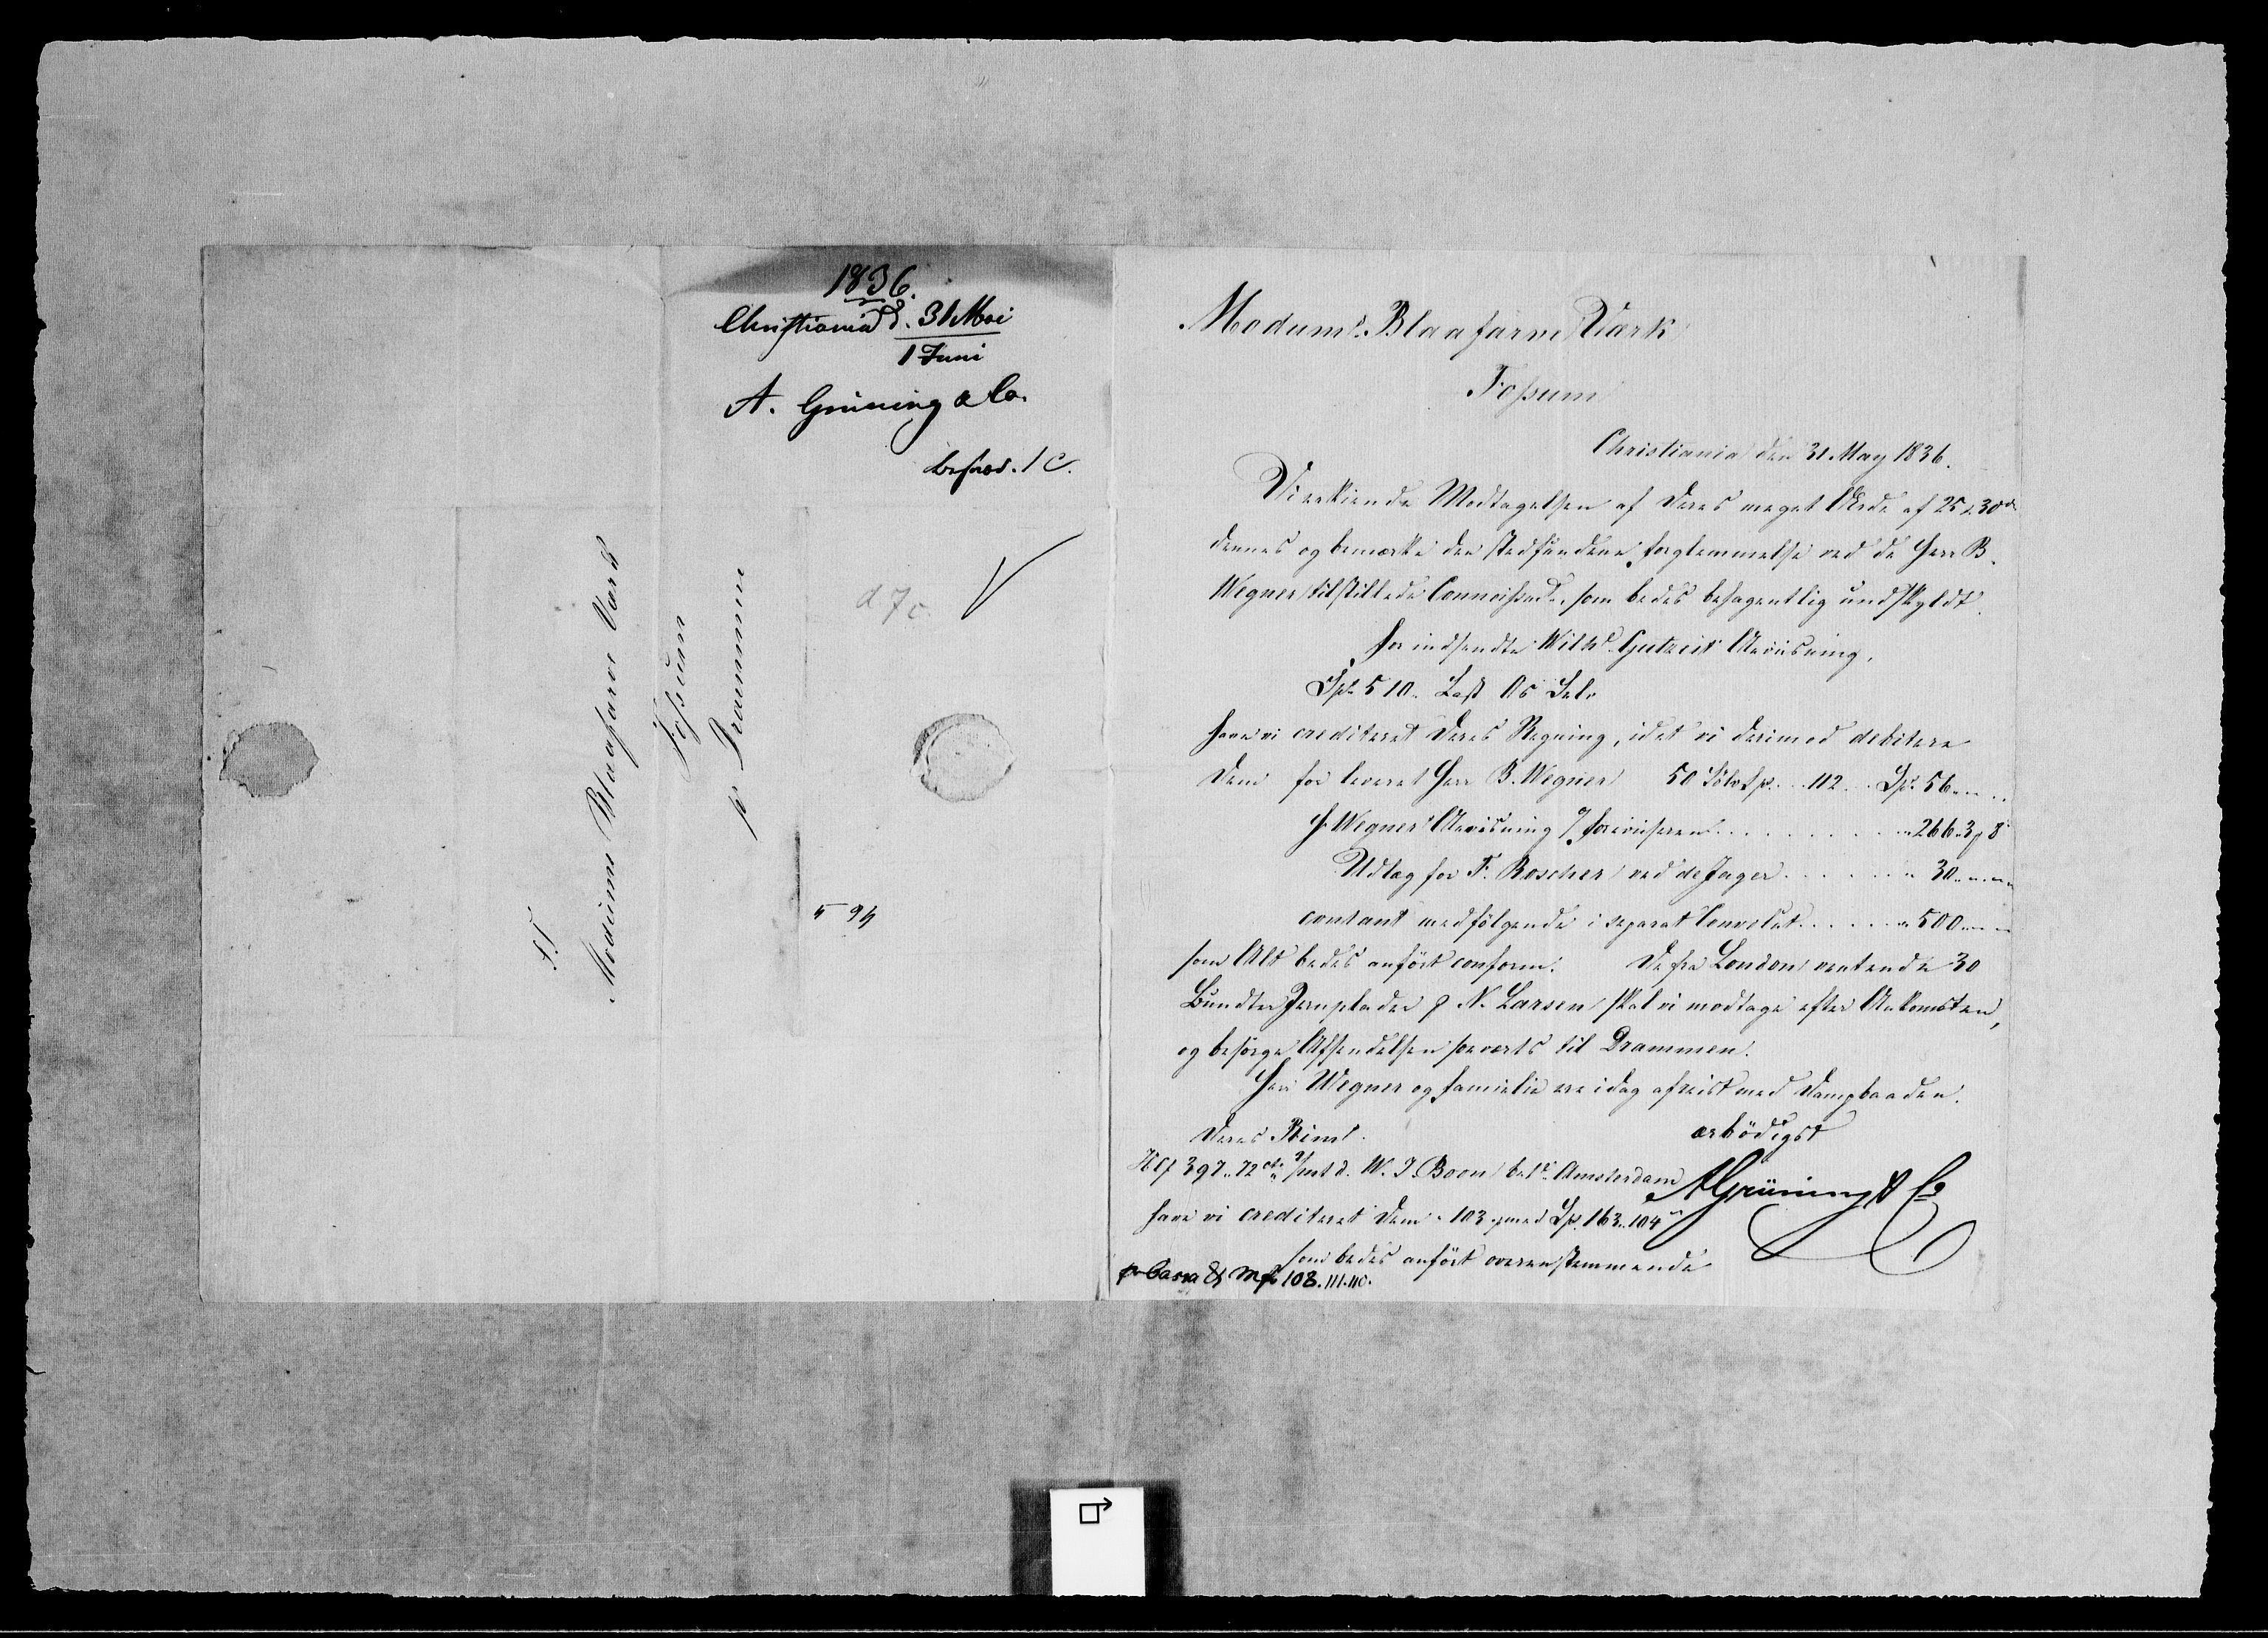 1836.
Christiania d. 31 Mai
1 Juni
A. Grüning & Co.
besvar. 1 C.
d 7 c.
S.T.
Modums Blaafarve Værk
Fossum
pr Drammen
5 94
Modums Blaafarve Værk
Fossum
Christiania den 31 May 1836.
Vi erkiende Modtagelsen af Deres meget Ærede af 25 & 30te
dennes og bemærke den stedfundene forglemmelse ved de Herr B.
Wegner tilstillede som bedes behagentlig undskyldt.
For indsendte Wilhd Gutzeit Anviisning,
Spd 510. Last
have vi crediteret Deres Regning, idet vi derimod debitere
Dem for leveret Herr B. Wegner 50 Sölv Sp. .. 112 .. Sp. 56 .. ..
H. Wegners Anviisning ........ " 266 " 3 β 8
Udlæg for F. Roscher ved de Jager ...... " 30 " " "
contant medfölgende i separat Convolut ...... " 500 " "
som Alt bedes anfört conform. De fra London ventende 30
Bundter Jernplader p N. Larsen skal vi modtage efter Ankomsten,
og besörge Afsendelsen til Drammen.
Herr Wegner og Familie ere idag afreist med Dampbaaden.
Deres Rims. ærbödigst
Hf 397 " 72 cts W. J. Boon Amsterdam
AGrüning & Co
have vi crediteret Dem " 103 med Sp. 163 " 104 "
som bedes anfört overenstemmende
pr Cassa & 108. 111. 110.